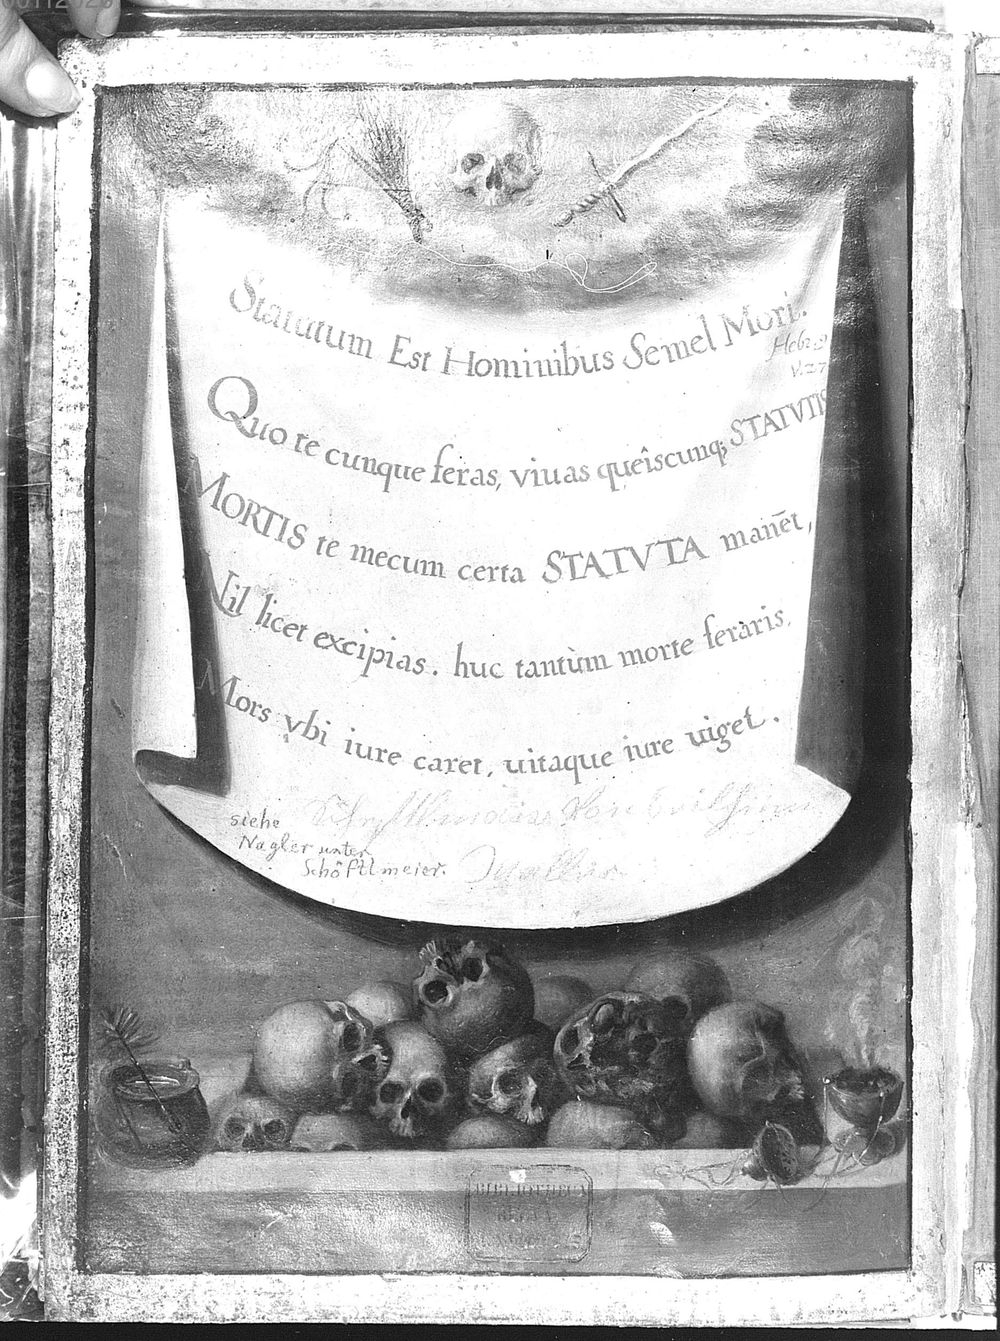 Statutum Est Hominibus Semel Mori.
Hebr. 9
V. 27
Quo te cunque feras, viuas queîscunq; STATVTIS
MORTIS te mecum certa STATVTA manēt,
Nil licet excipias. huc tantùm morte ferâris,
Mors vbi iure caret, uitaque iure uiget.
siehe
Nagler unter
Schöfttmeier.
BIBLIOTHECA
REGIA